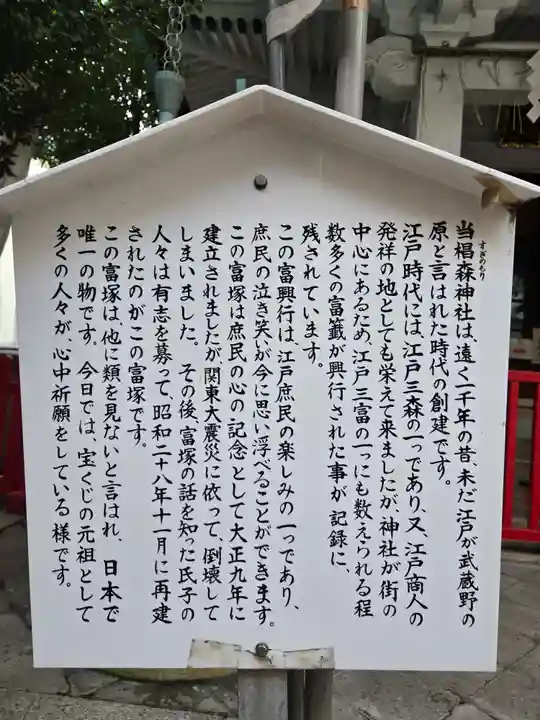 当椙森神社は、遠く一千年の昔、未だ江戸が武蔵野の
すぎのもり
原と言はれた時代の創建です。
江戸時代には、江戸三森の一つであり、又、江戸商人の
発祥の地としても栄えて来ましたが、神社が街の
中心にあるため、江戸三富の一つにも数えられる程
数多くの富籤が興行された事が記録に、
残されています。
この富興行は、江戸庶民の楽しみの一つであり、
庶民の泣き笑いが今に思い浮べることができます。
この富塚は庶民の心の記念として大正九年に
建立されましたが、関東大震災に依って、倒壊して
しまいました。その後、富塚の話を知った氏子の
人々は有志を募って、昭和二十八年十一月に再建
されたのがこの富塚です。
この富塚は、他に類を見ないと言はれ、日本で
唯一の物です。今日では、宝くじの元祖として
多くの人々が、心中祈願をしている様です。